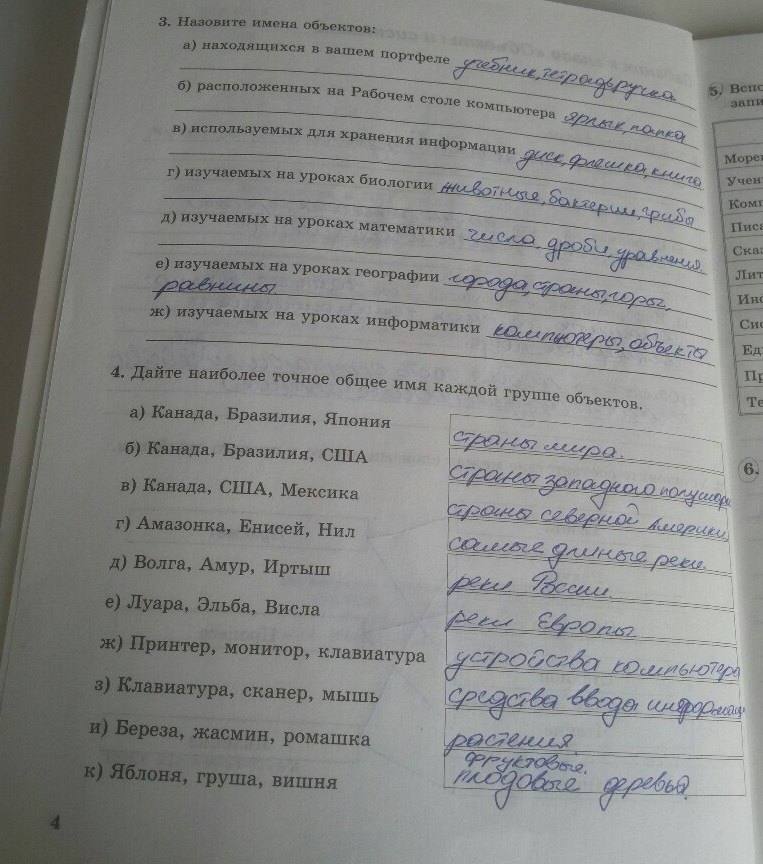 3. Назовите имена объектов:
а) находящихся в вашем портфеле учебник, тетрадь, ручка
б) расположенных на Рабочем столе компьютера ярлык, папка
в) используемых для хранения информации диск, флешка, книга
г) изучаемых на уроках биологии животные, бактерии, грибы
д) изучаемых на уроках математики числа, дроби, уравнения
е) изучаемых на уроках географии города, страны, горы,
равнины
ж) изучаемых на уроках информатики компьютеры, объекты
4. Дайте наиболее точное общее имя каждой группе объектов.
а) Канада, Бразилия, Япония страны мира.
б) Канада, Бразилия, США страны западного полушари
в) Канада, США, Мексика страны северной Америки
г) Амазонка, Енисей, Нил самые длиные реки
д) Волга, Амур, Иртыш реки России
е) Луара, Эльба, Висла реки Европы
ж) Принтер, монитор, клавиатура устройства компьютера
з) Клавиатура, сканер, мышь средства ввода информаци
и) Береза, жасмин, ромашка растения.
фруктовые.
к) Яблоня, груша, вишня плодовые деревья.
4
5. Вспо
запи
Море
Учен
Комп
Писа
Сказ
Лит
Инс
Сис
Ед
Пр
Те
6.